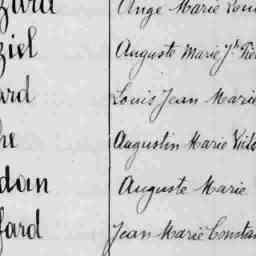 zard Ange Marie Loui
ziel Auguste Marie Jh Pier
ard Louis Jean Marie
he Augustin Marie Vict
dan Auguste Marie
fard Jean Marie Constan